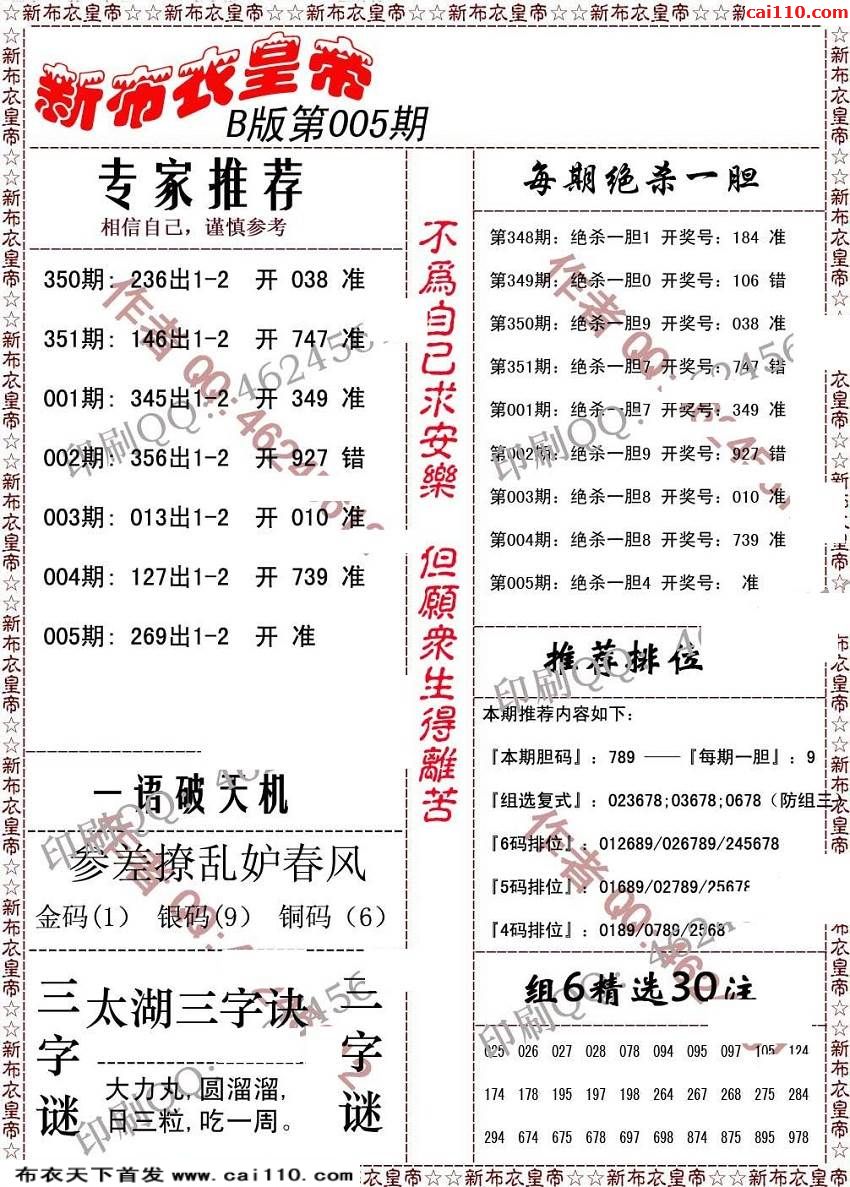 ☆☆新布衣皇帝☆☆新布衣皇帝☆☆新布衣皇帝☆☆新布衣皇帝☆☆新布衣皇帝☆☆新
cai110.com
新布衣皇帝
B版第005期
专家推荐
相信自己，谨慎参考
350期: 236出1-2 开 038 准
351期: 146出1-2 开 747 准
001期: 345出1-2 开 349 准
002期: 356出1-2 开 927 错
003期: 013出1-2 开 010 准
004期: 127出1-2 开 739 准
005期: 269出1-2 开 准
一语破天机
参差撩乱妒春风
金码(1) 银码(9) 铜码（6）
三字谜
太湖三字诀
大力丸,圆溜溜,
日三粒,吃一周。
三字谜
不為自己求安樂
但願衆生得離苦
每期绝杀一胆
第348期: 绝杀一胆1 开奖号: 184 准
第349期: 绝杀一胆0 开奖号: 106 错
第350期: 绝杀一胆9 开奖号: 038 准
第351期: 绝杀一胆7 开奖号: 747 错
第001期: 绝杀一胆7 开奖号: 349 准
第002期: 绝杀一胆9 开奖号: 927 错
第003期: 绝杀一胆8 开奖号: 010 准
第004期: 绝杀一胆8 开奖号: 739 准
第005期: 绝杀一胆4 开奖号: 准
推荐排位
本期推荐内容如下:
『本期胆码』: 789 ——『每期一胆』: 9
『组选复式』: 023678;03678;0678（防组三）
『6码排位』: 012689/026789/245678
『5码排位』: 01689/02789/25678
『4码排位』: 0189/0789/2568
组6精选30注
025 026 027 028 078 094 095 097 105 124
174 178 195 197 198 264 267 268 275 284
294 674 675 678 697 698 874 875 895 978
布衣天下首发 www.cai110.com